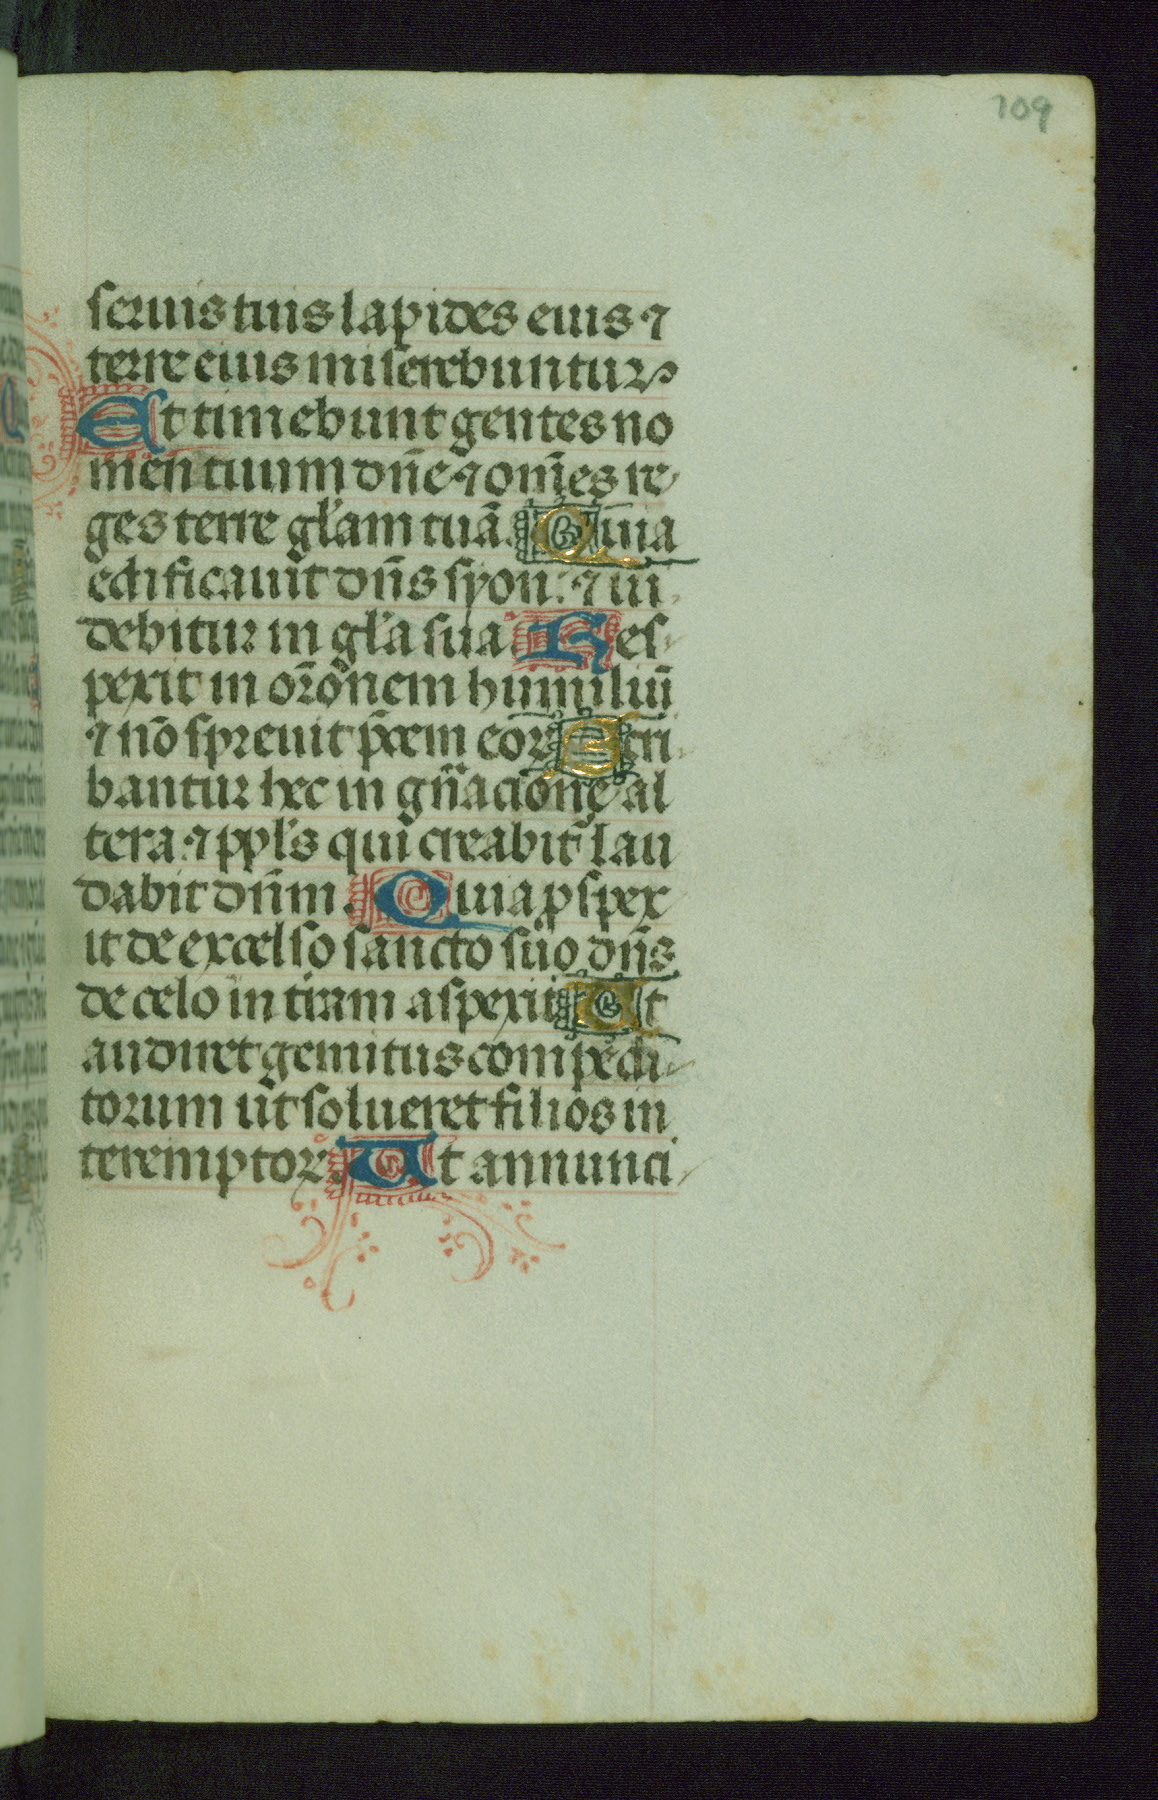 109
seruis tuis lapides eius ⁊
terre eius miserebuntur
Et timebunt gentes no
men tuum dn̄e ⁊ om̄es re
ges terre gl̄am tuā. Quia
edificauit dn̄s syon: ⁊ ui
debitur in gl̄a sua. Res
pexit in or̄onem humiliū
⁊ nō spreuit p̄cem eor Scri
bantur hec in gn̄acione al
tera: ⁊ ppl̄s qui creabit̄ lau
dabit dn̄m. Quia ꝓspex
it de excelso sancto suo dn̄s
de celo in tiram aspexit Ut
audiret gemitus compedi
torum ut solueret filios in
teremptor. Ut annunci